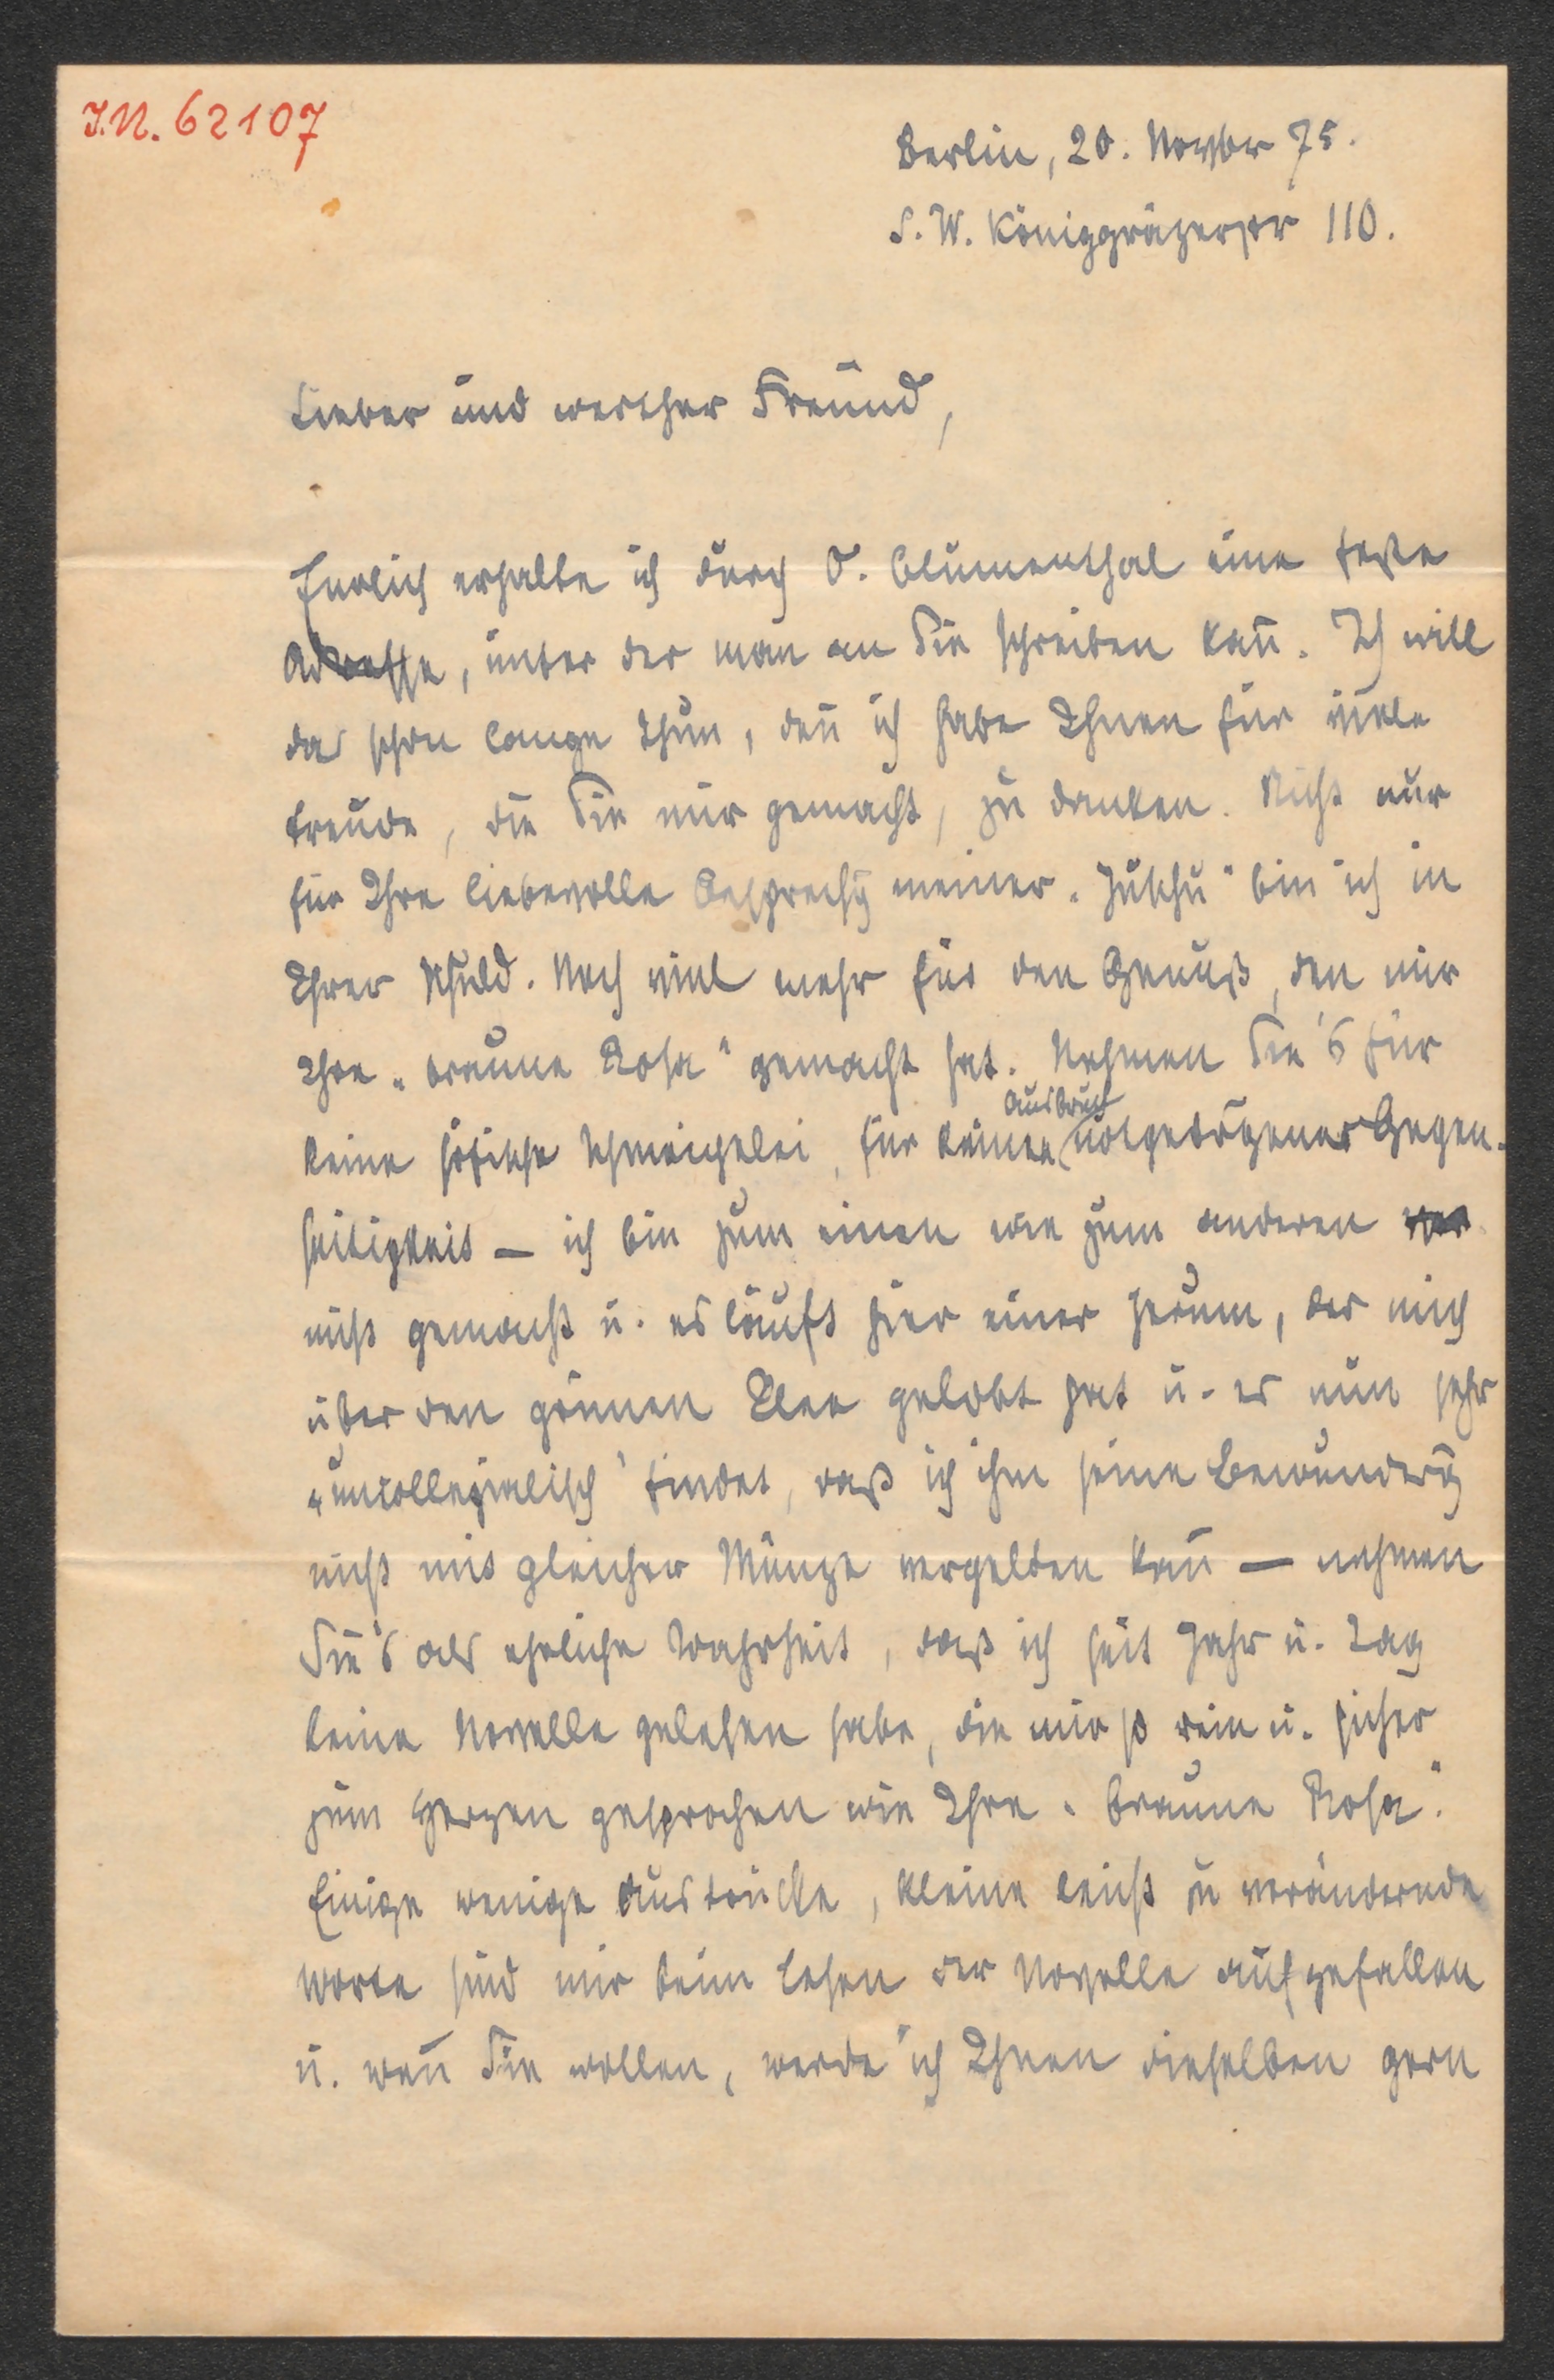 I.N. 62107
Berlin, 20. Novbr 75.
S. W. Königgräzerstr 110.
Lieber und werther Freund,
Endlich erhalte ich durch O. Blumenthal eine feste
Adresse, unter der man an Sie schreiben kan̄. Ich will
das schon lange thun, den̄ ich habe Ihnen für viele
Freude, die Sie mir gemacht, zu danken. Nicht nur
für Ihre liebevolle Besprechg meiner „Juschu" bin ich in
Ihrer Schuld. Noch viel mehr für den Genuß, den mir
Ihre „braune Rosa" gemacht hat. Nehmen Sie's für
Ausdruck
keine höfliche Schmeichelei, für keinen notgedrungener Gegen-
seitigkeit — ich bin zum einen wie zum anderen
nicht gemacht u. es läuft hier einer herum, der mich
über den grünen Klee gelobt hat u. es nun sehr
„uncollegialisch" findet, daß ich ihm seine Bewunderg
nicht mit gleicher Münze vergelten kan̄ — nehmen
Sie's als ehrliche Wahrheit, daß ich seit Jahr u. Tag
keine Novelle gelesen habe, die mir so rein u. sicher
zum Herzen gesprochen wie Ihre „braune Rosa".
Einige wenige Ausdrücke, kleine leicht zu verändernde
Worte sind mir beim Lesen der Novelle aufgefallen
u. wen̄ Sie wollen, werde ich Ihnen dieselben gern